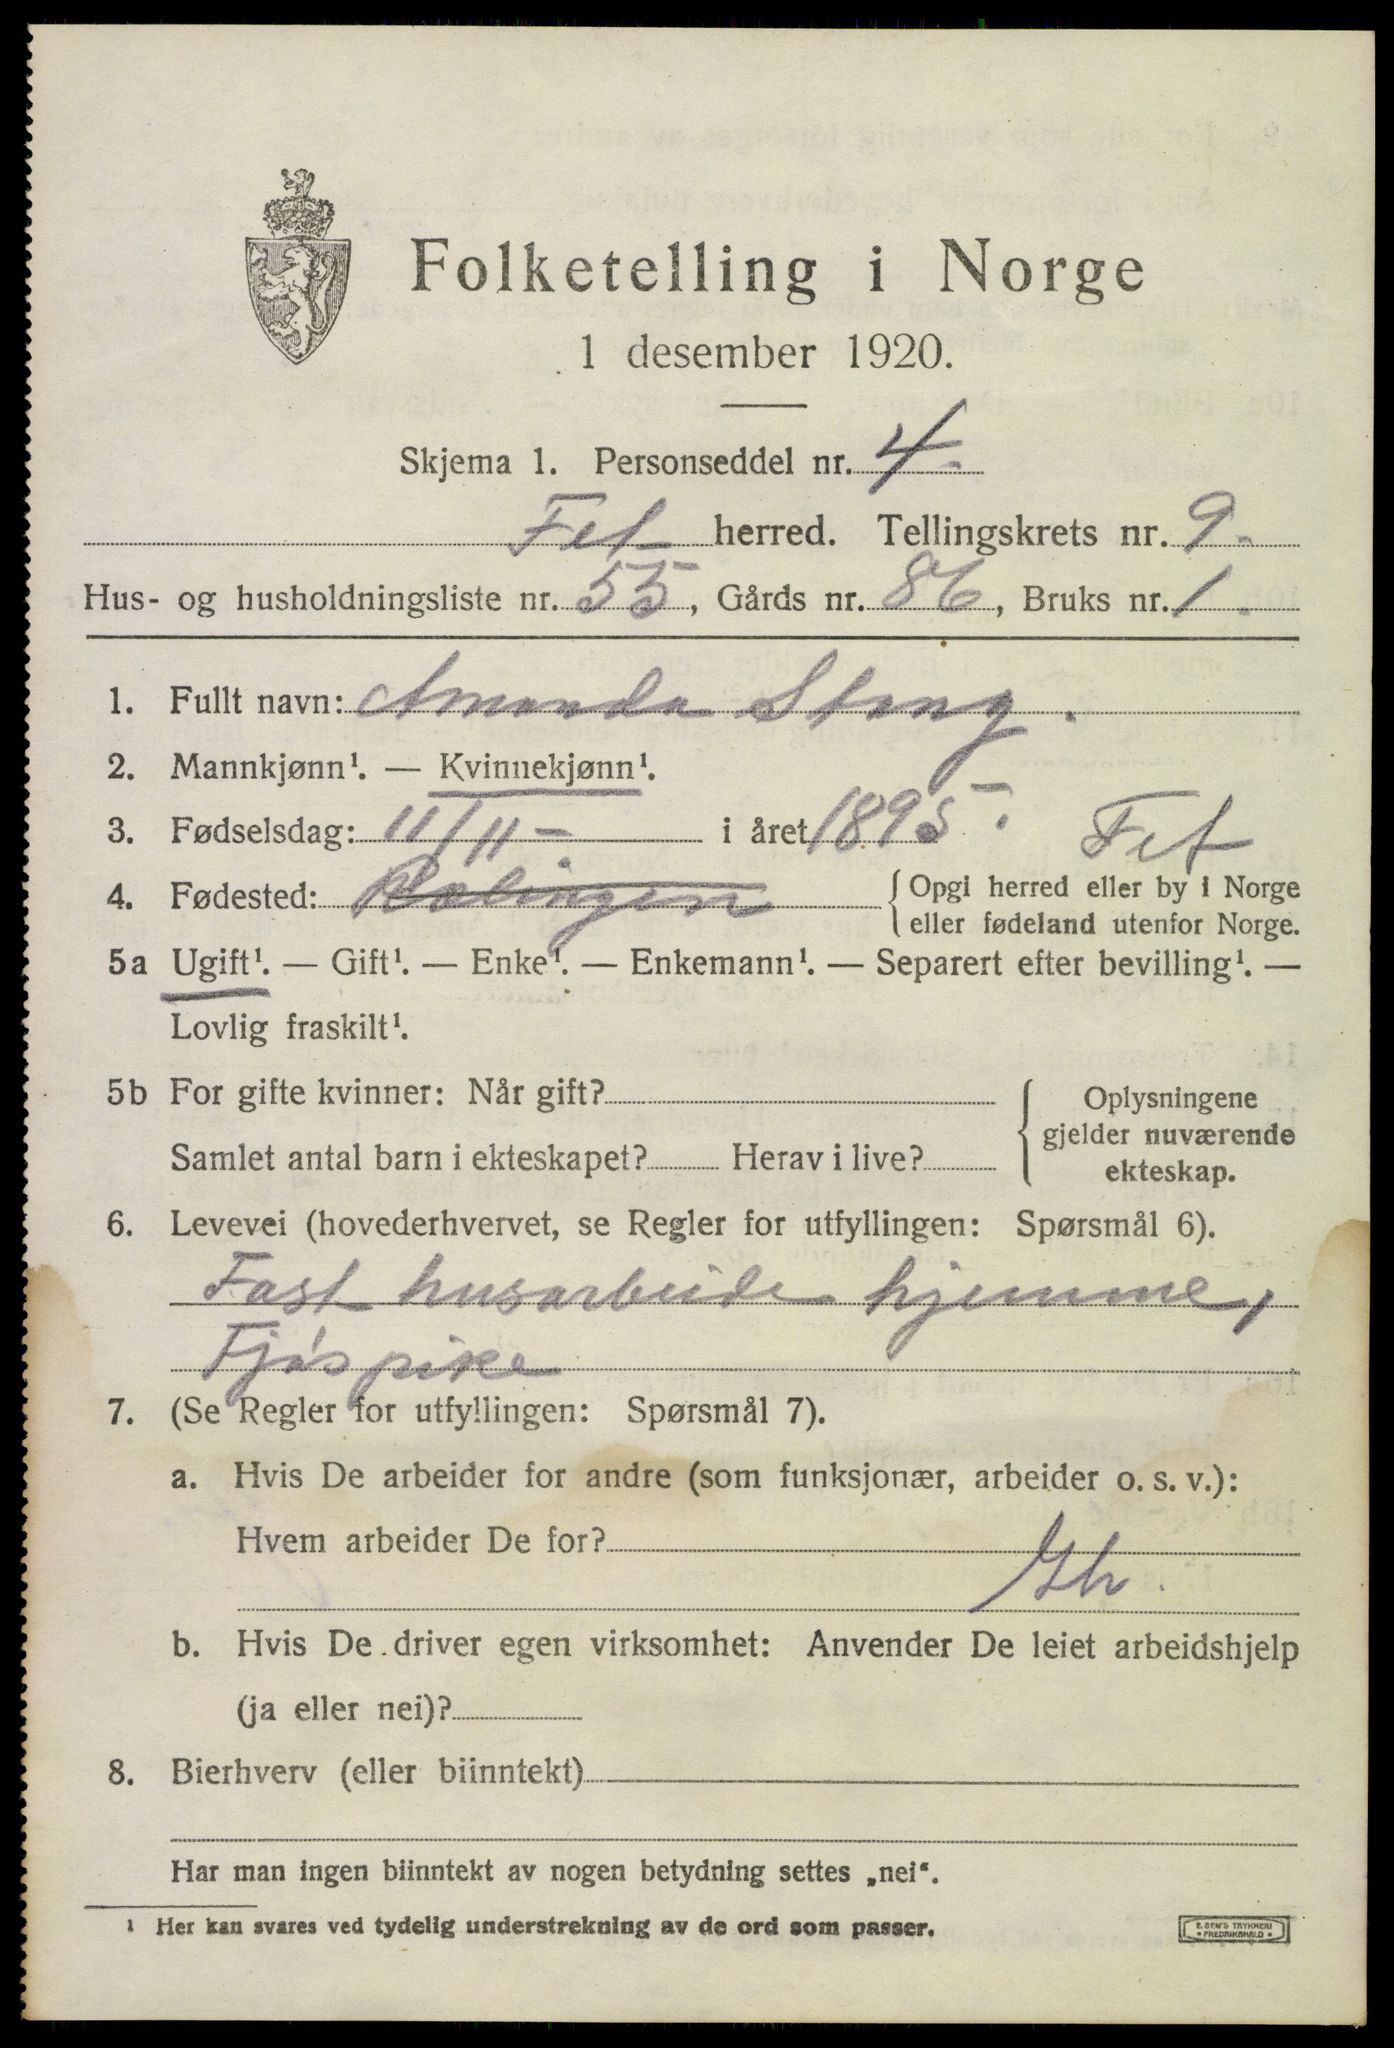 Folketelling i Norge
1 desember 1920.
Skjema 1. Personseddel nr. 4.
Fet herred. Tellingskrets nr. 9.
Hus- og husholdningsliste nr. 55, Gårds nr. 86, Bruks nr. 1.
1. Fullt navn: Amanda Stang.
2. Mannkjønn¹. — Kvinnekjønn¹.
3. Fødselsdag: 11/11- i året 1895. Fet
4. Fødested: Rælingen { Opgi herred eller by i Norge
eller fødeland utenfor Norge.
5a Ugift¹. — Gift¹. — Enke¹. — Enkemann¹. — Separert efter bevilling¹. —
Lovlig fraskilt¹.
5b For gifte kvinner: Når gift? { Oplysningene
gjelder nuværende
Samlet antal barn i ekteskapet? Herav i live? ekteskap.
6. Levevei (hovederhvervet, se Regler for utfyllingen: Spørsmål 6).
Fast husarbeide hjemme,
Fjøspike
7. (Se Regler for utfyllingen: Spørsmål 7).
a. Hvis De arbeider for andre (som funksjonær, arbeider o. s. v.):
Hvem arbeider De for?
Gh.
b. Hvis De driver egen virksomhet: Anvender De leiet arbeidshjelp
(ja eller nei)?
8. Bierhverv (eller biinntekt)
Har man ingen biinntekt av nogen betydning settes „nei“.
¹ Her kan svares ved tydelig understrekning av de ord som passer.
E. SEM'S TRYKKERI
• FREDRIKSHALD •